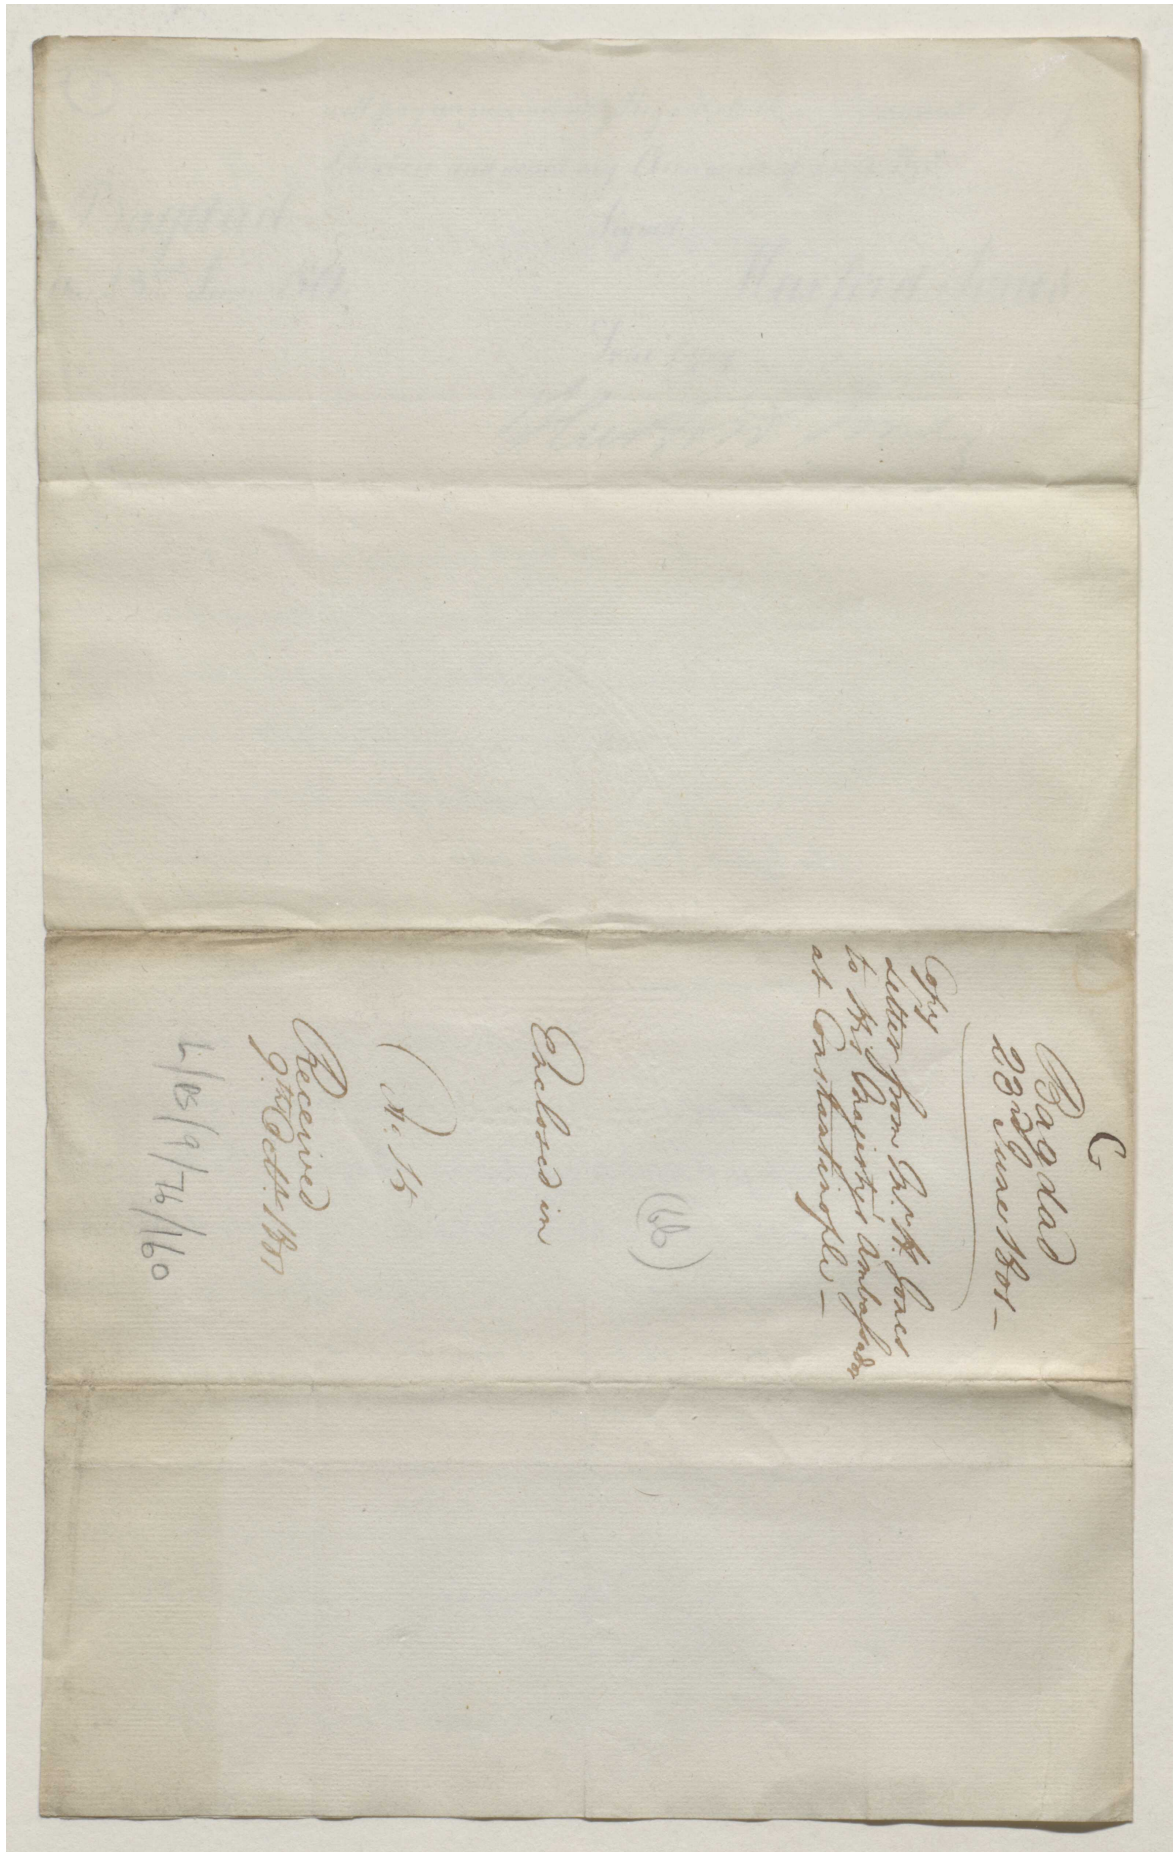 G
Bagdad
23rd June 1801 –
Copy
Letter from Mr. H. Jones
to His Majesty's Ambassador
at Constantinople –
(66)
Enclosed in
No. 15
Received
9th Octr. 1801
L/PS/9/76/160